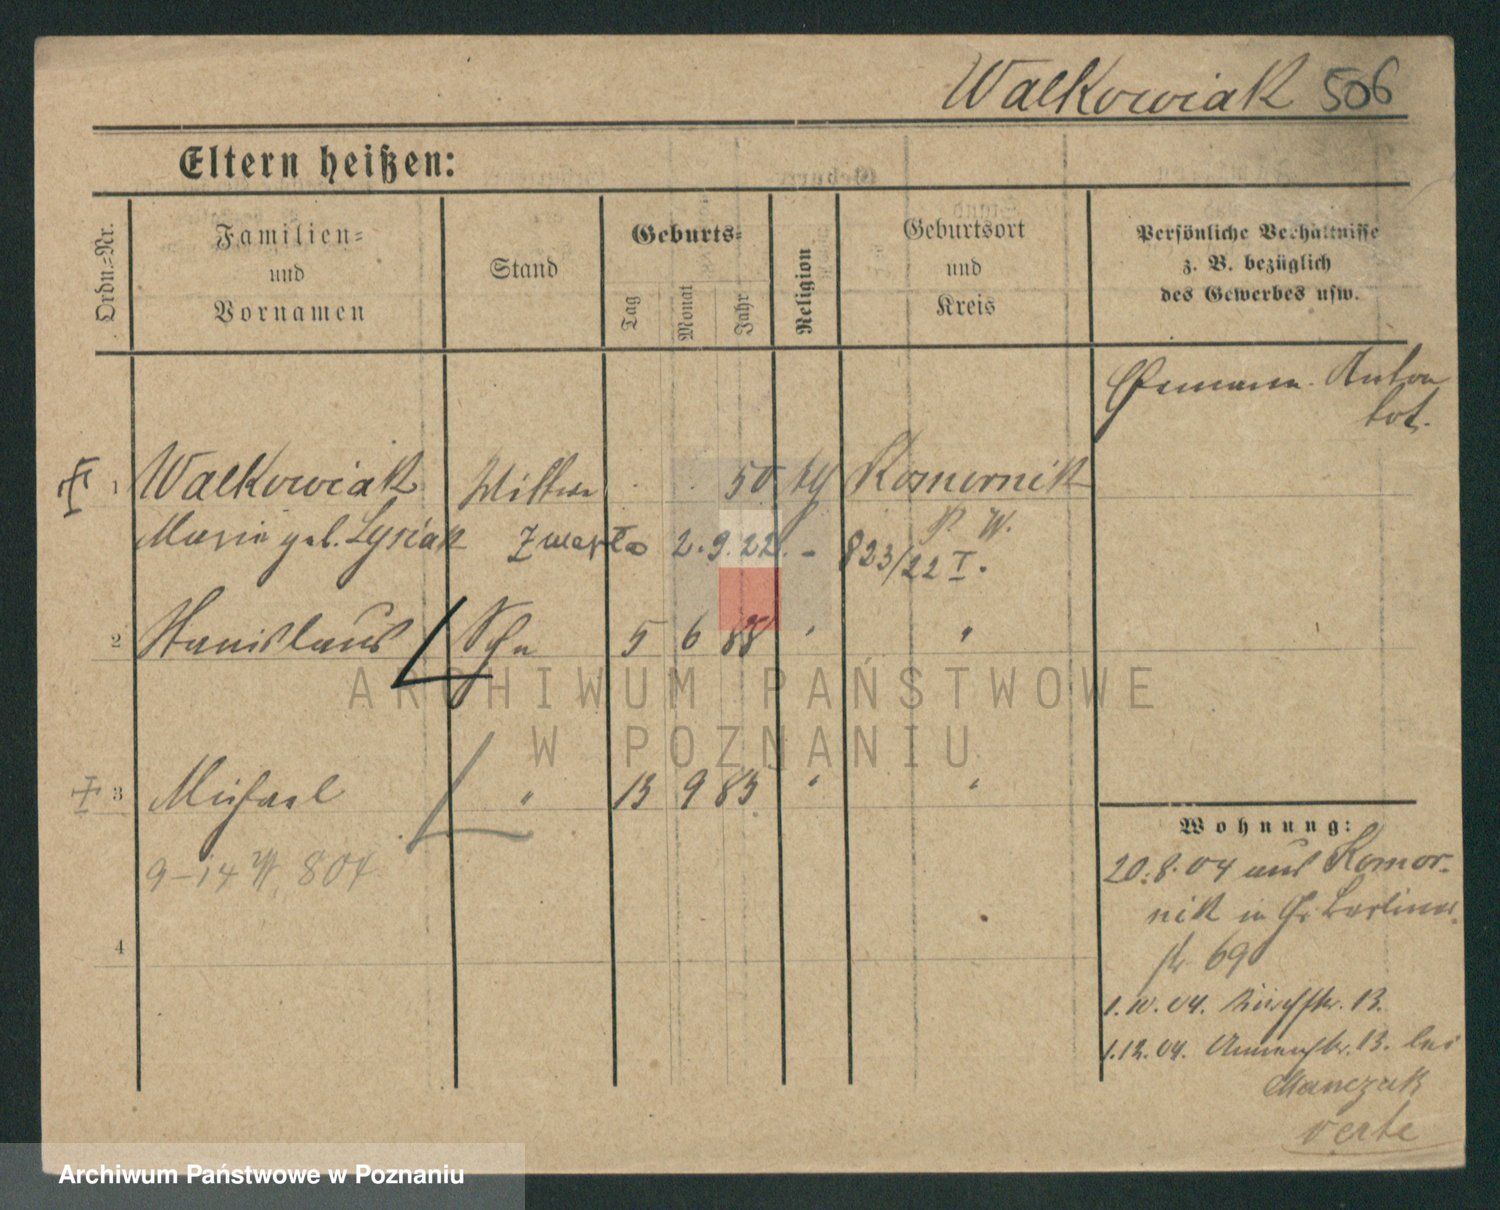 Walkowiak 506
Eltern heißen:
Ordn.-Nr.
Familien-
und
Vornamen
Stand
Geburts-
Tag
Monat
Jahr
Religion
Geburtsort
und
Kreis
Persönliche Verhältnisse
z. B. bezüglich
des Gewerbes usw.
Ehemann. Anton
tot.
1 Walkowiak Wittwe 50 kth Komornik
P. W.
Maria geb. Lysiak zmarła 2.9.22. - 823/22 I.
2 Stanislaus Sohn 5 6 88 " "
3 Michael " 13 9 83 " "
9-14 804
4
Wohnung:
20.8.04 aus Komor-
nik in Gr. Berliner
str 69
1.10.04. 13.
1.12.04. 13. bei
Manczak
verte
ARCHIWUM PAŃSTWOWE
W POZNANIU
Archiwum Państwowe w Poznaniu